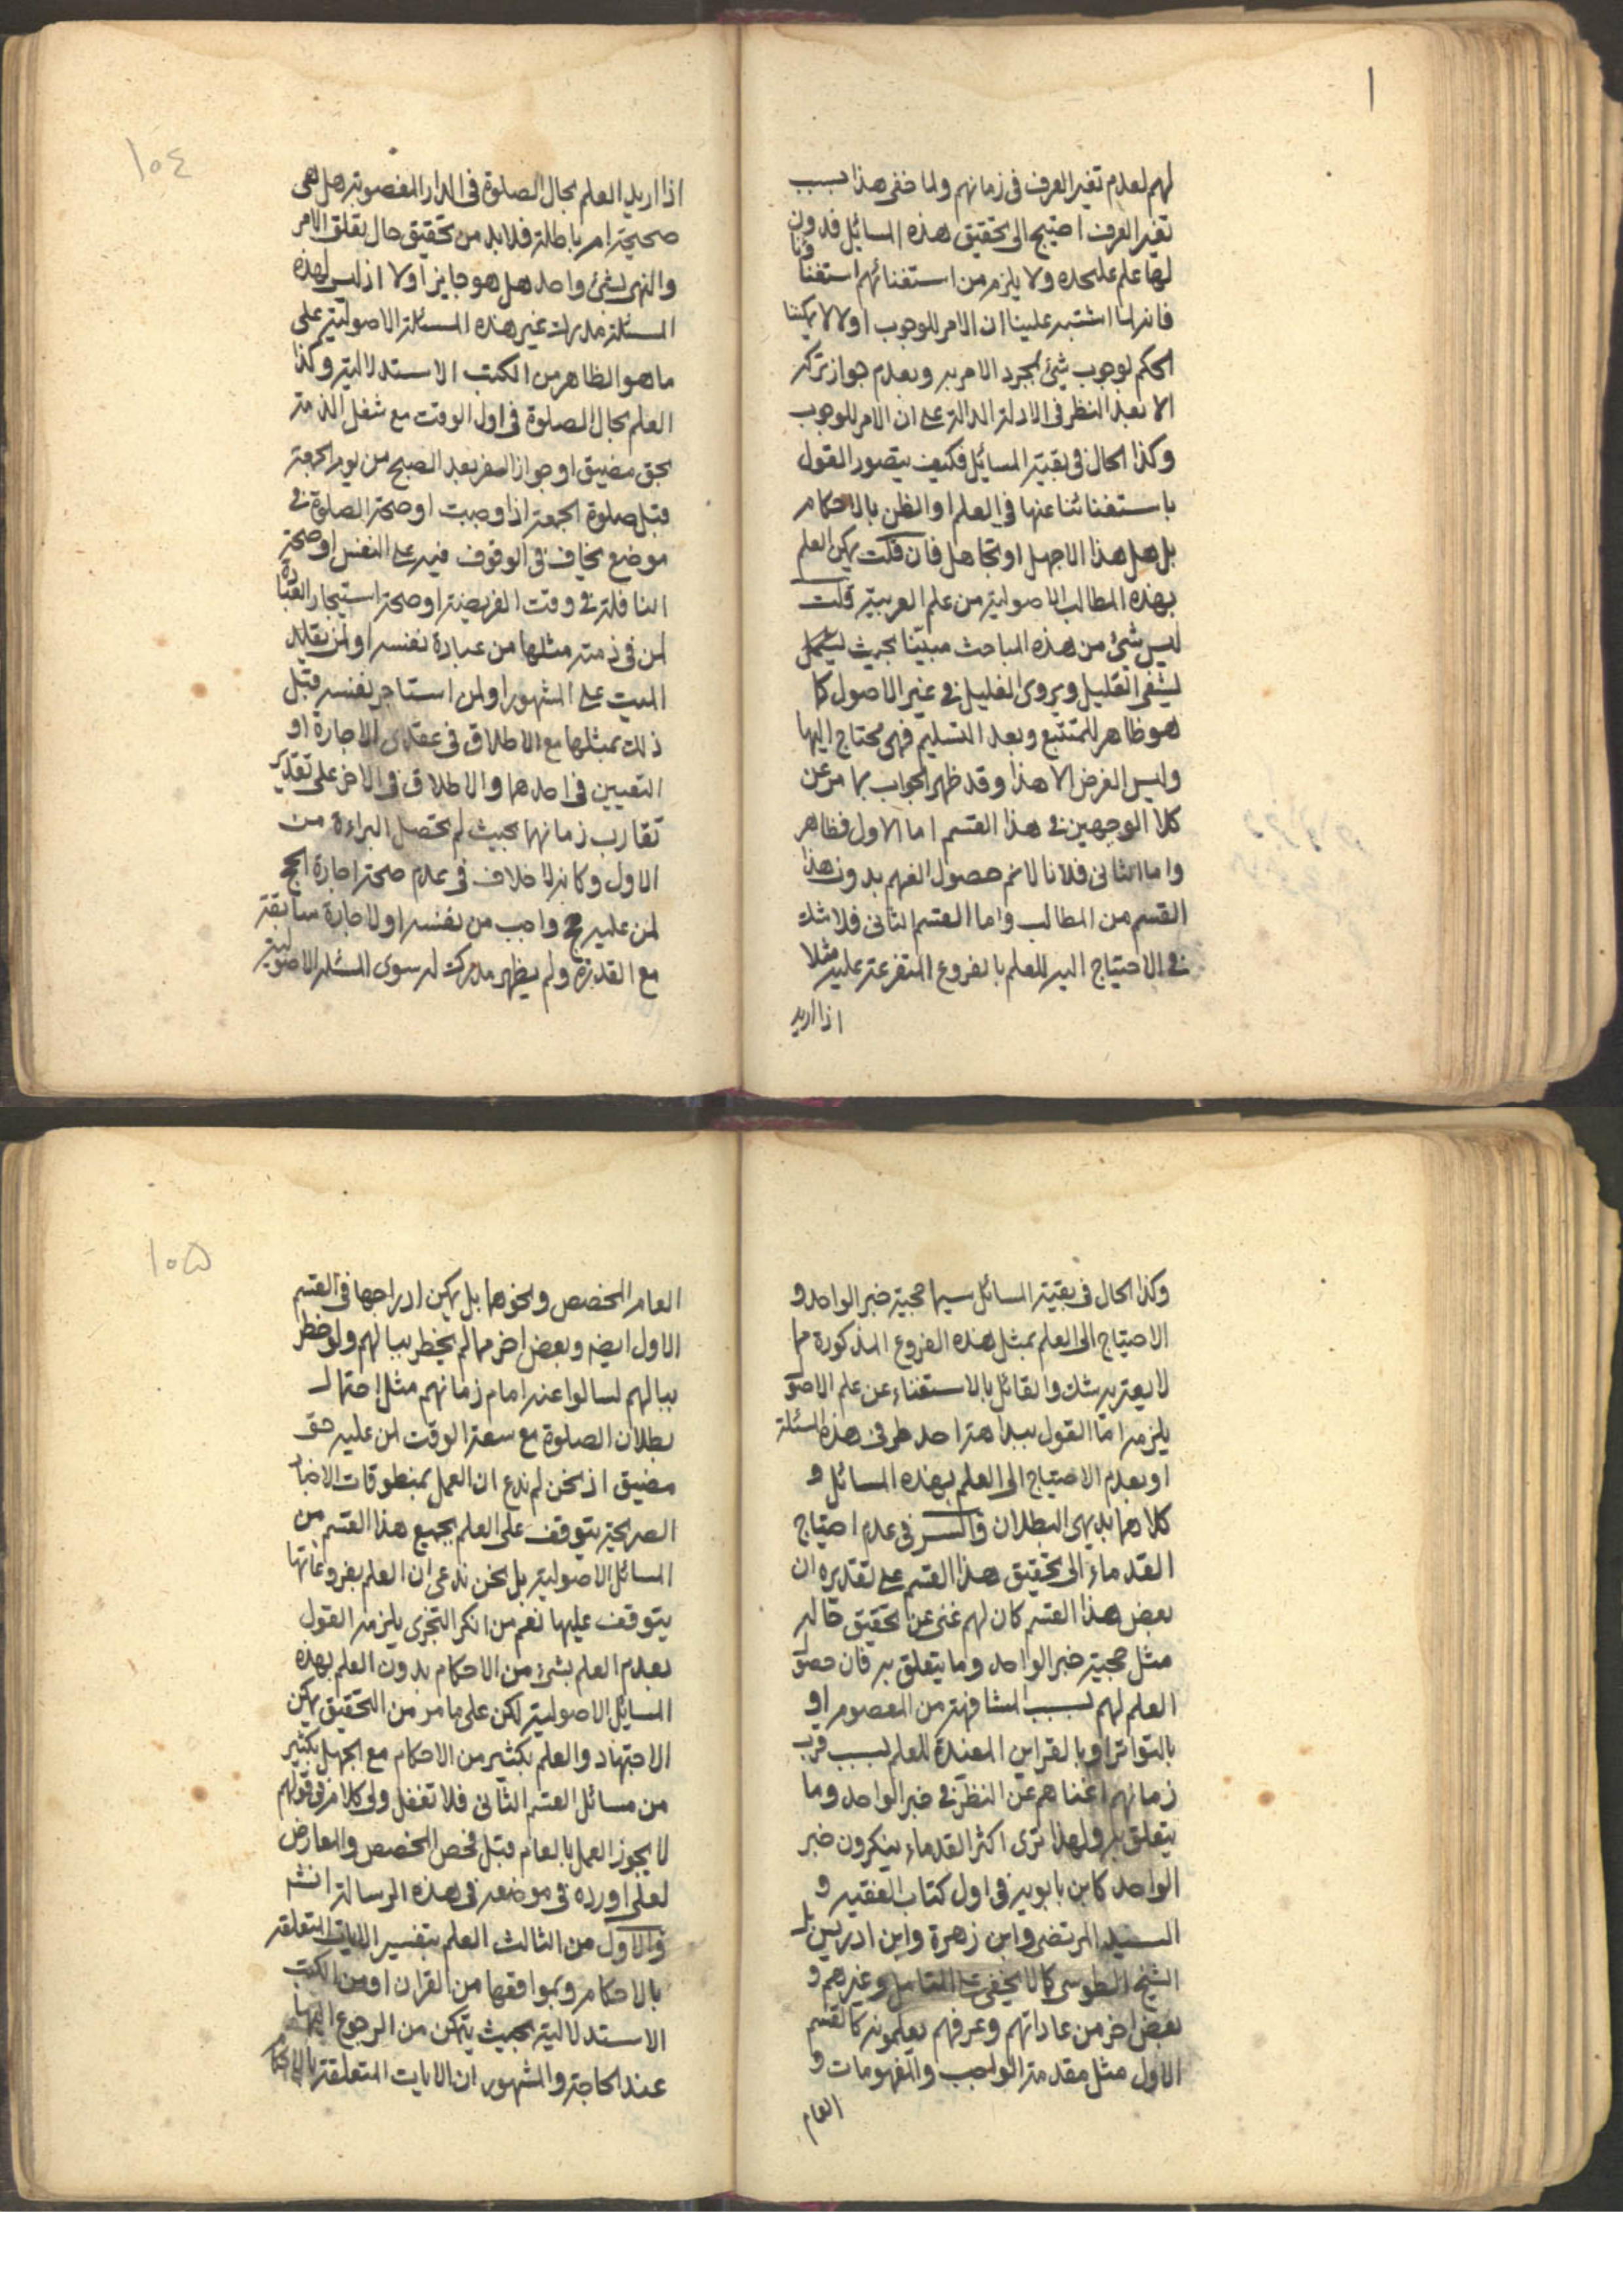 ١
لهم لعدم تغير العرف فى زمانهم ولما خفى هذا بسبب
تغير العرف احتيج الى تحقيق هذه المسائل فدون
لها علم عليحده ولا يلزم من استغنائهم استغناؤنا
فانه لما اشتبه علينا ان الامر للوجوب اولا لا يمكننا
الحكم بوجوب شئ بمجرد الامر به وبعدم جواز تركه
الا بعد النظر فى الادلة الدالة على ان الامر للوجوب
وكذا الحال فى بقية المسائل فكيف يتصور القول
باستغنائنا عنها فى العلم او الظن بالاحكام
بل هل هذا الا جهل او تجاهل فان قلت يمكن العلم
بهذه المطالب الاصولية من علم العربية قلت
ليس شئ من هذه المباحث مبيّنا بحيث
ليشفى العليل ويروى الغليل فى غير الاصول كما
هو ظاهر للمتتبع وبعد التسليم فهى محتاج اليها
وليس الغرض الا هذا وقد ظهر الجواب بما مر عن
كلا الوجهين فى هذا القسم اما الاول فظاهر
واما الثانى فلانا لا نم حصول الفهم بدون هذا
القسم من المطالب واما القسم الثانى فلا شك
فى الاحتياج اليه للعلم بالفروع المتفرعة عليه مثلا
اذا اريد
١٠٤
اذا اريد العلم بحال الصلوة فى الدار المغصوبة هل هى
صحيحة ام باطلة فلا بد من تحقيق حال تعلق الامر
والنهى بشئ واحد هل هو جايز اولا اذ ليس لهذه
المسئلة مدرك غير هذه المسئلة الاصولية على
ما هو الظاهر من الكتب الاستدلالية وكذا
العلم بحال الصلوة فى اول الوقت مع شغل الذمة
بحق مضيق او جواز السفر بعد الصبح من يوم الجمعة
قبل صلوة الجمعة اذا وجبت او صحة الصلوة فى
موضع يخاف فى الوقوف فيه على النفس او صحة
النافلة فى وقت الفريضة او صحة استيجار العبادة
لمن فى ذمته مثلها من عبادة نفسه او لمن يقلد
الميت على المشهور او لمن استاجر نفسه قبل
ذلك بمثلها مع الاطلاق فى عقدى الاجارة او
التعيين فى احدهما والاطلاق فى الاخر على تقدير
تقارب زمانهما بحيث لم تحصل البراءة من
الاول وكانه لا خلاف فى عدم صحة اجارة الحج
لمن عليه حج واجب من نفسه او لاجارة سابقة
مع القدرة ولم يظهر مدرك له سوى المسئلة الاصولية
وكذا الحال فى بقية المسائل سيما حجية خبر الواحد و
الاحتياج الى العلم بمثل هذه الفروع المذكورة مما
لا يعتريه شك والقائل بالاستغناء عن علم الاصو
يلزمه اما القول ببداهة احد طرفى هذه المسئلة
او بعدم الاحتياج الى العلم بهذه المسائل و
كلاهما بديهى البطلان والسر فى عدم احتياج
القدماء الى تحقيق هذا القسم على تقديره ان
بعض هذا القسم كان لهم غنى عن تحقيق حاله
مثل حجية خبر الواحد وما يتعلق به فان حصول
العلم لهم بسبب المشافهة من المعصوم او
بالتواتر او بالقراين المفيدة للعلم بسبب قرب
زمانهم اغناهم عن النظر فى خبر الواحد وما
يتعلق به ولهذا ترى اكثر القدماء ينكرون خبر
الواحد كابن بابويه فى اول كتاب الغيبة و
السيد المرتضى وابن زهرة وابن ادريس بل
الشيخ الطوسى كما لا يخفى على المتامل وغيرهم و
بعض اخر من عاداتهم وعرفهم يعلمونه كالقسم
الاول مثل مقدمة الواجب والمفهومات و
العام
١٠٥
العام المخصص ونحوها بل يمكن ادراجها فى القسم
الاول ايضه وبعض اخر مما لم يخطر ببالهم ولو خطر
ببالهم لسالوا عنه امام زمانهم مثل احتمال
بطلان الصلوة مع سعة الوقت لمن عليه حق
مضيق اذ نحن لم ندع ان العمل بمنطوقات الاخبار
الصريحة يتوقف على العلم بجميع هذا القسم من
المسائل الاصولية بل نحن ندعى ان العلم بفروعاتها
يتوقف عليها نعم من انكر التجزى يلزمه القول
بعدم العلم بشئ من الاحكام بدون العلم بهذه
المسايل الاصولية لكن على ما مر من التحقيق يمكن
الاجتهاد والعلم بكثير من الاحكام مع الجهل بكثير
من مسائل القسم الثانى فلا تغفل ولى كلام فى قولهم
لا يجوز العمل بالعام قبل فحص المخصص والمعارض
لعلى اورده فى موضعه فى هذه الرسالة انشه
والاول من الثالث العلم بتفسير الايات المتعلقة
بالاحكام وبمواقعها من القران او من الكتب
الاستدلالية بحيث يتمكن من الرجوع اليها
عند الحاجة والمشهور ان الايات المتعلقة بالاحكا